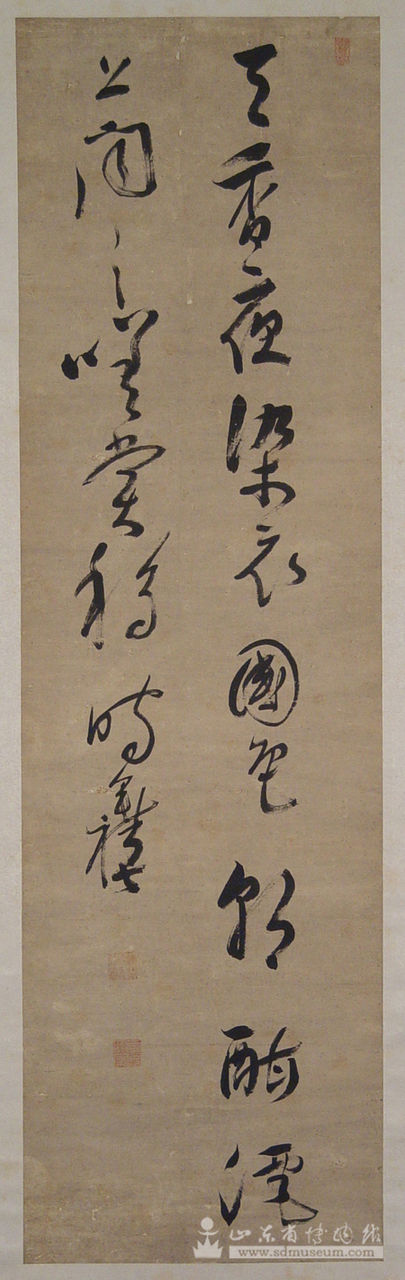 天香夜染衣國色朝酣酒
上聞之嗟賞移時
山东省博物馆
www.sdmuseum.com